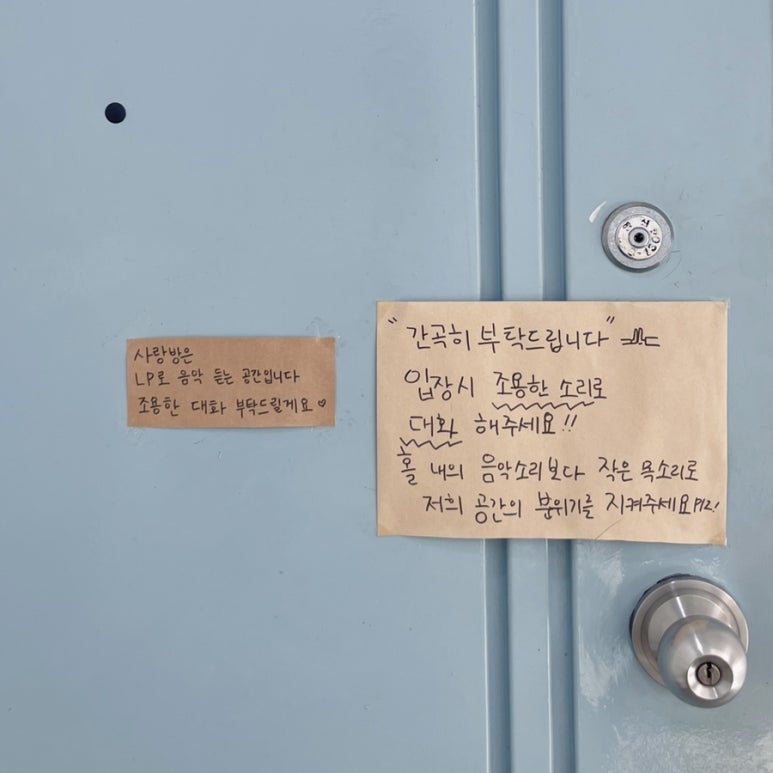 사랑방은
LP로 음악 듣는 공간입니다
조용한 대화 부탁드릴게요♡
"간곡히 부탁드립니다"
입장시 조용한 소리로
대화 해주세요!!
홀 내의 음악소리보다 작은 목소리로
저희 공간의 분위기를 지켜주세요 PLZ!